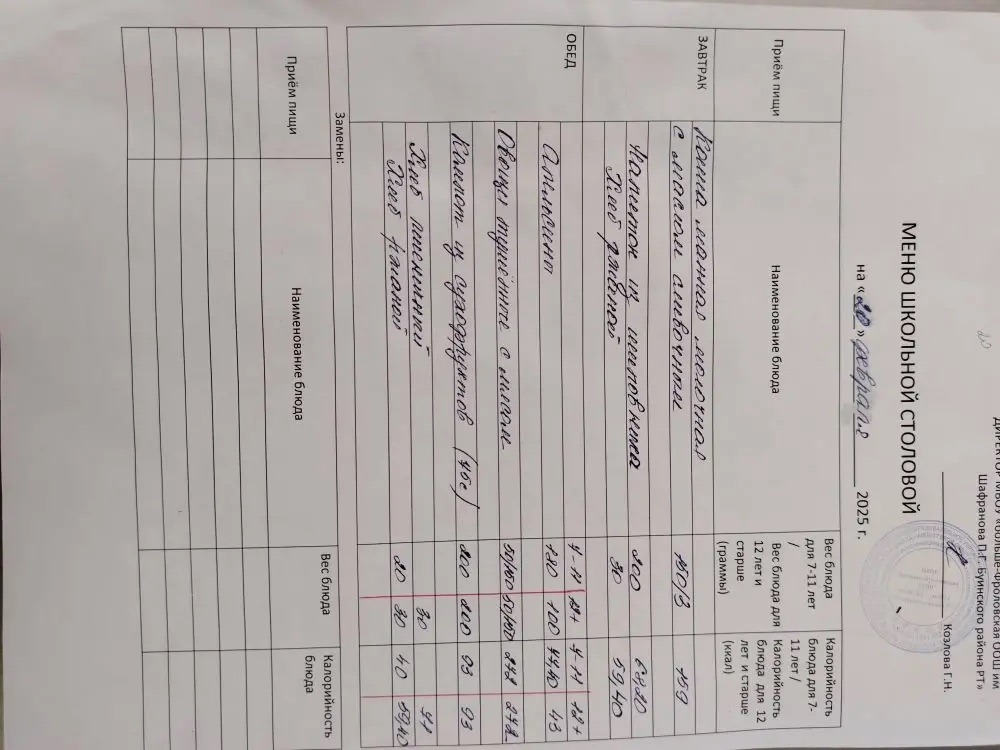 ДИРЕКТОР МБОУ «Больше-Фроловская ООШ им
Шафранова П.Г. Буинского района РТ»
Козлова Г.Н.
МЕНЮ ШКОЛЬНОЙ СТОЛОВОЙ
на « 20 » февраля 2025 г.
Приём пищи
Наименование блюда
Вес блюда для 7-11 лет / Вес блюда для 12 лет и старше (граммы)
Калорийность блюда для 7-11 лет / Калорийность блюда для 12 лет и старше (ккал)
ЗАВТРАК
Каша манная молочная
с маслом сливочным 159
Напиток из шиповника 200 68,20
Хлеб ржаной 30 59,40
ОБЕД
7-11 12+ 7-11 12+
Апельсин 100 43
Овощи тушённые с мясом 50/150 50/150 272 272
Компот из сухофруктов 200 200 93 93
Хлеб пшеничный 30 71
Хлеб ржаной 20 30 40 59,40
Замены:
Приём пищи
Наименование блюда
Вес блюда
Калорийность блюда